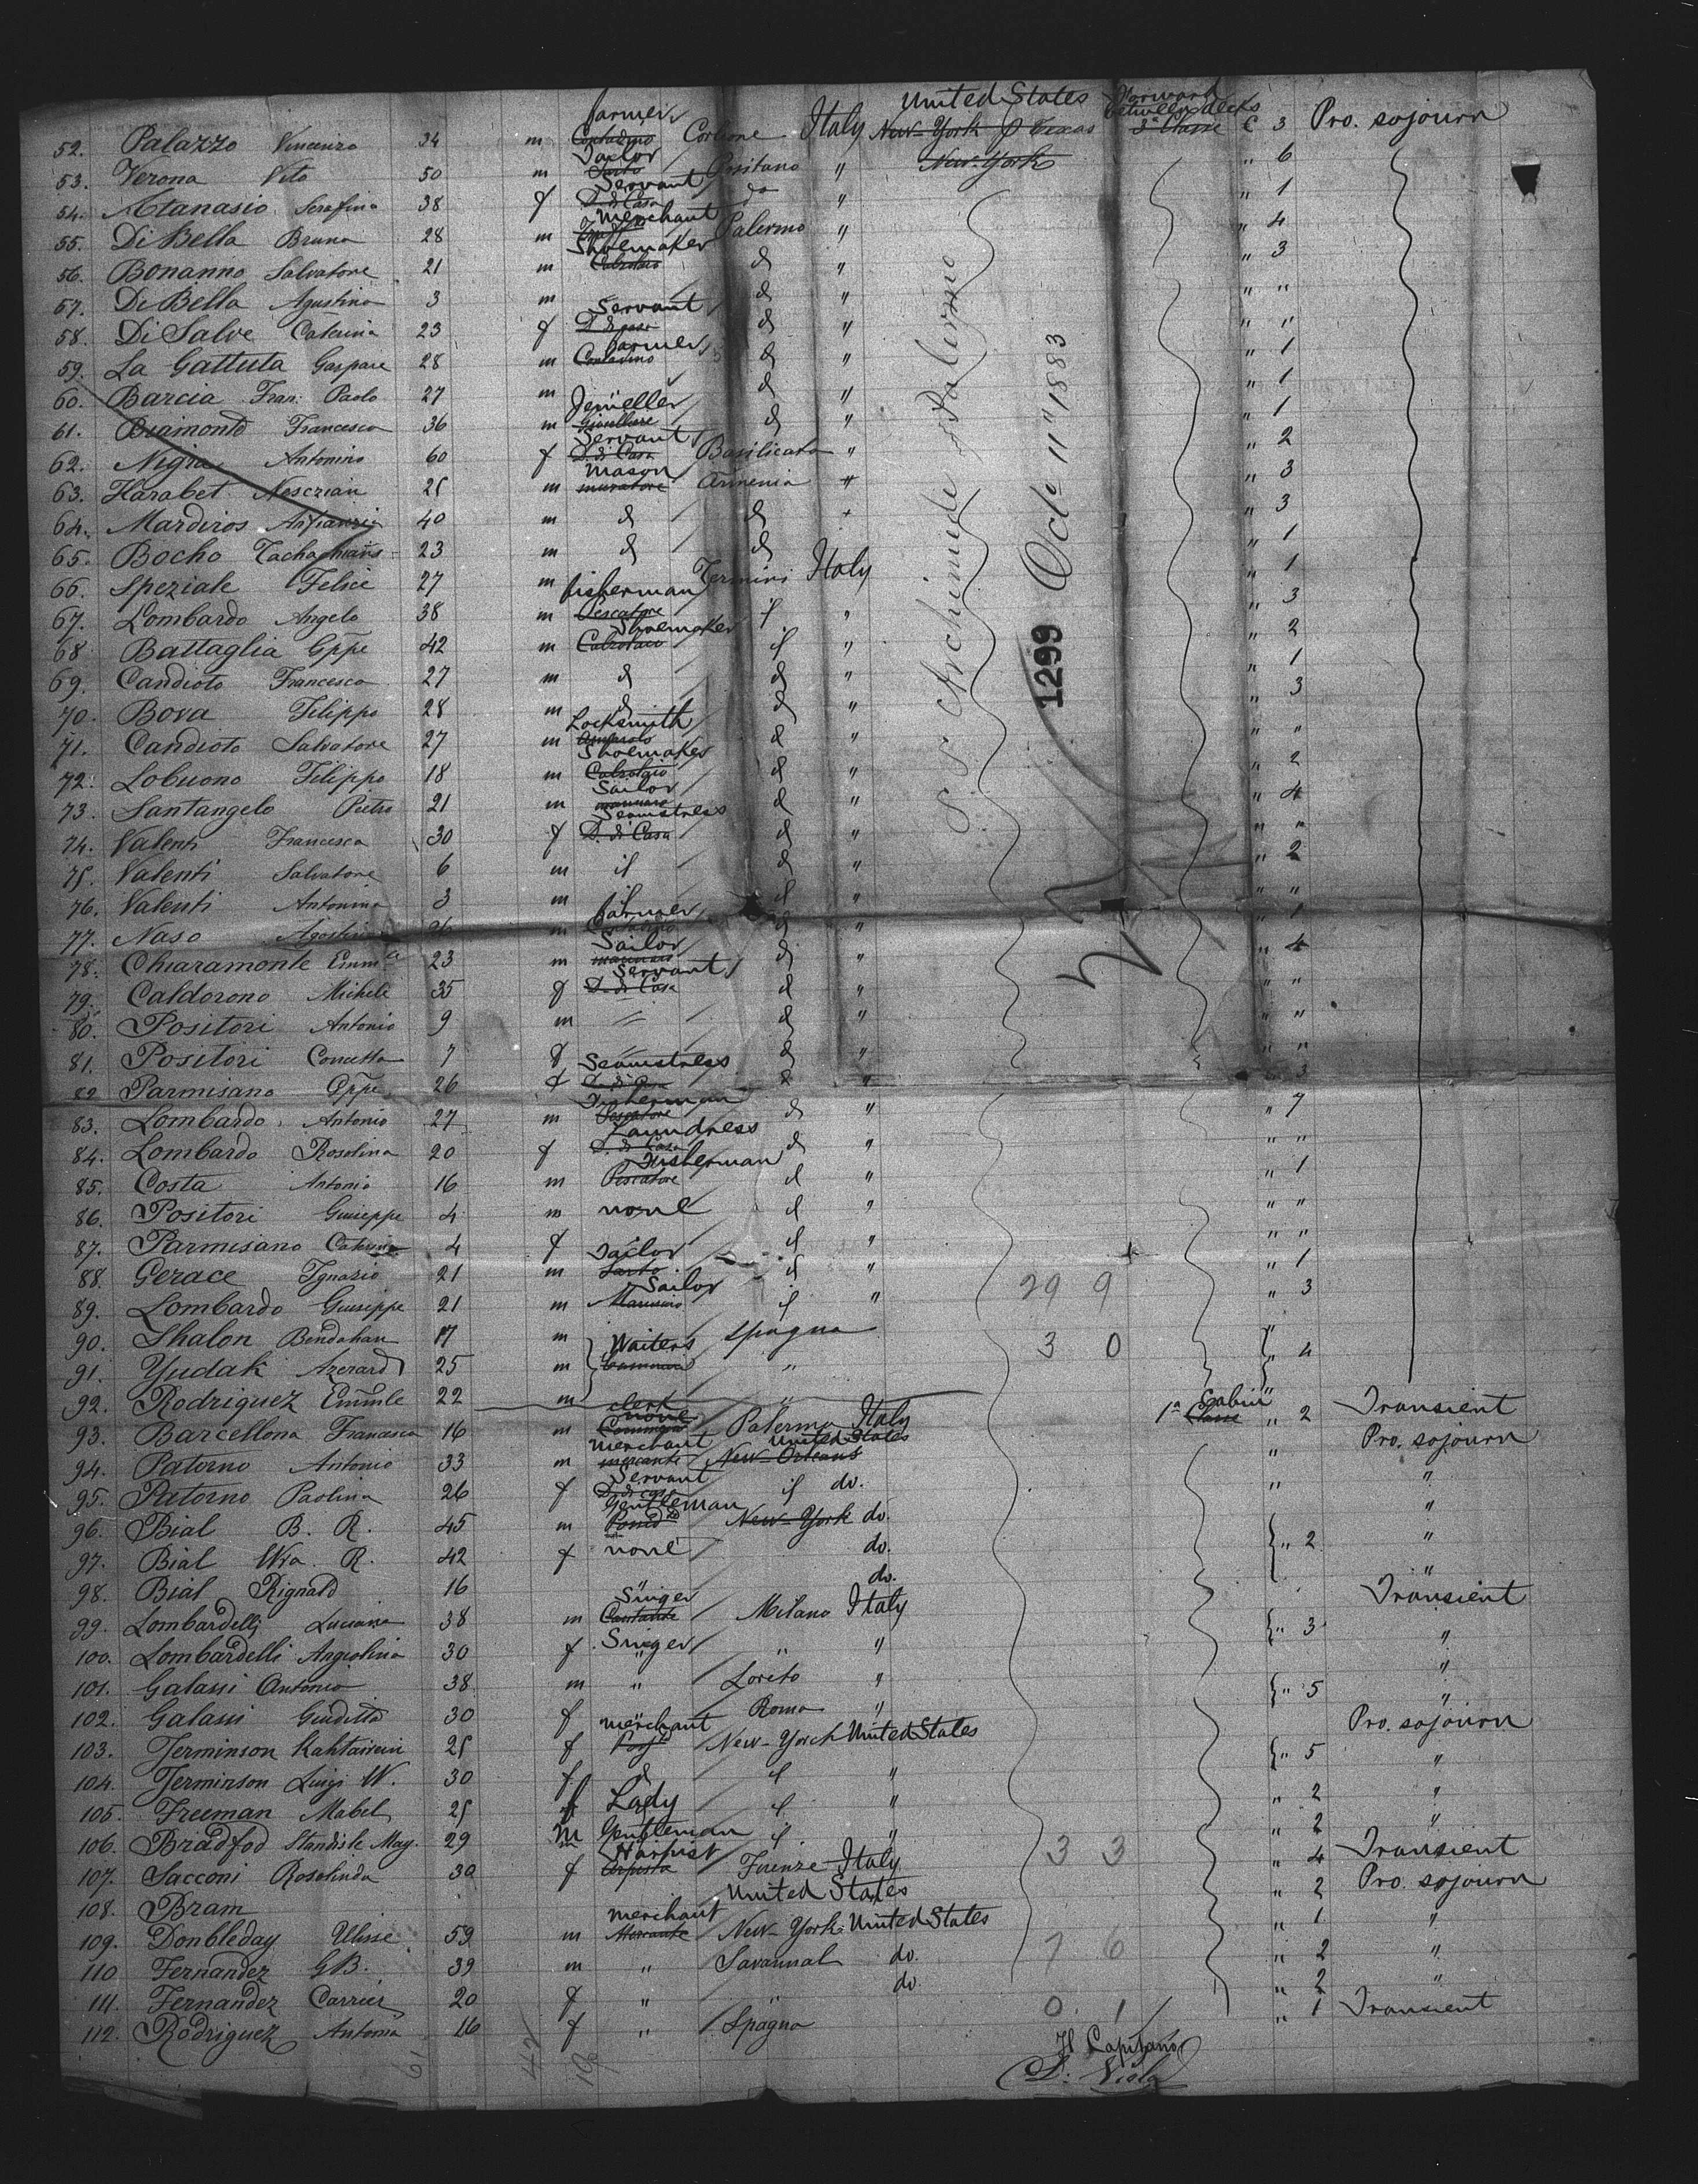 52. Palazzo Vincenzo 34 m farmer Contadino Corleone Italy United States New-York p Texas Forward between decks 3a Classe C 3 Pro. sojourn
53. Verona Vito 50 m Tailor Sarto Positano " New-York " 6
54. Atanasio Serafina 38 f Servant D. di Casa do " " 1
55. Di Bella Bruna 28 m Merchant Palermo " " 4
56. Bonanno Salvatore 21 m Shoemaker Calzolaio d " " 3
57. Di Bella Agustino 3 m d " " "
58. Di Salve Caterina 23 f Servant D. di casa d " " "
59. La Gattuta Gaspare 28 m farmer Contadino d " " 1
60. Barcia Fran: Paolo 27 m d " " 1
61. Biamonte Francesco 36 m Jeweller Gioielliere d " " 1
62. Nigra Antonino 60 f Servant D. di Casa Basilicata " " 2
63. Harabet Nesczian 25 m Mason muratore Armenia " " 3
64. Mardiros 40 m d d " " 3
65. Bocho 23 m d d " 1
66. Speziale Felice 27 m Termini Italy " 1
67. Lombardo Angelo 38 m fisherman Pescatore if " " 3
68 Battaglia Gppe 42 m Shoemaker Calzolaio if " " 2
69. Candioto Francesco 27 m d d " " 1
70. Bova Filippo 28 m d d " " 3
71. Candioto Salvatore 27 m Locksmith d " " "
72. Lobuono Filippo 18 m Shoemaker Calzolaio d " " 2
73. Santangelo Pietro 21 m Sailor marinaro d " " 4
74. Valenti Francesca 30 f Seamstress D. di Casa d " " "
75. Valenti Salvatore 6 m if d " " 2
76. Valenti Antonino 3 m if if " " "
77. Naso Agostino 26 m farmer Contadino d " " 1
78. Chiaramonte Emmle 23 m Sailor marinaro d " " 4
79. Caldorono Michele 35 f Servant D. di Casa d " " "
80. Positori Antonio 9 m " d " " "
81. Positori Concetta 7 f " d " " "
82. Parmisano Gppe 26 f Seamstress D. di Casa d " " 3
83. Lombardo Antonio 27 m Fisherman Pescatore d " " 7
84. Lombardo Rosolina 20 f Laundress D. di Casa d " " "
85. Costa Antonio 16 m Fisherman Pescatore d " " 1
86. Positori Giuseppe 4 m none d " " "
87. Parmisano Caterina 4 f d " " "
88. Gerace Ignazio 21 m Tailor Sarto d " " 1
89. Lombardo Giuseppe 21 m Sailor Marinaro if " " 3
90. Shalon Bendahan 17 m Waiters Spagna "
91. Yudak Azerard 25 m " " 4
92. Rodriguez Emmle 22 m clerk " "
93. Barcellona Francesco 16 m none Palermo Italy 1a Cabin Classe " 2 Transient
94. Patorno Antonio 33 m merchant mercante New-Orleans United States " Pro. sojourn
95. Patorno Paolina 26 f Servant D. di casa if do. " "
96. Bial B. R. 45 m Gentleman New-York do. "
97. Bial Wia. R. 42 f none do. " 2 "
98. Bial Rignald 16 " do. "
99. Lombardelli Luciano 38 m Singer Cantante Milano Italy Transient
100. Lombardelli Angiolina 30 f Singer " " " 3 "
101. Galassi Antonio 38 m " Loreto " "
102. Galassi Giuditta 30 f " Roma " " 5 "
103. Jerminson Kahtaivein 25 f merchant New-Yorch United States Pro. sojourn
104. Jerminson Luigi W. 30 f d if " " 5 "
105. Freeman Mabel 25 f Lady if " " 2 "
106. Bradfod Standisle May. 29 m Gentleman if " " 2 "
107. Sacconi Rosolinda 30 f Harpist Arpista Firenze Italy " 4 Transient
108. Bram United States " 2 Pro. sojourn
109. Donbleday Ulisse 59 m merchant Mercante New-York United States " 1 "
110 Fernandez GB. 39 m " Savannal do. " 2 "
111. Fernandez Carrier 20 f " " do. " 2 "
112. Rodriguez Antonia 16 f " Spagna " 1 Transient
S. S. Archimede Palermo
1299 Oct 11" 1883
29 9
3 0
3 3
7 6
0. 1
Il Capitano
L. Viola